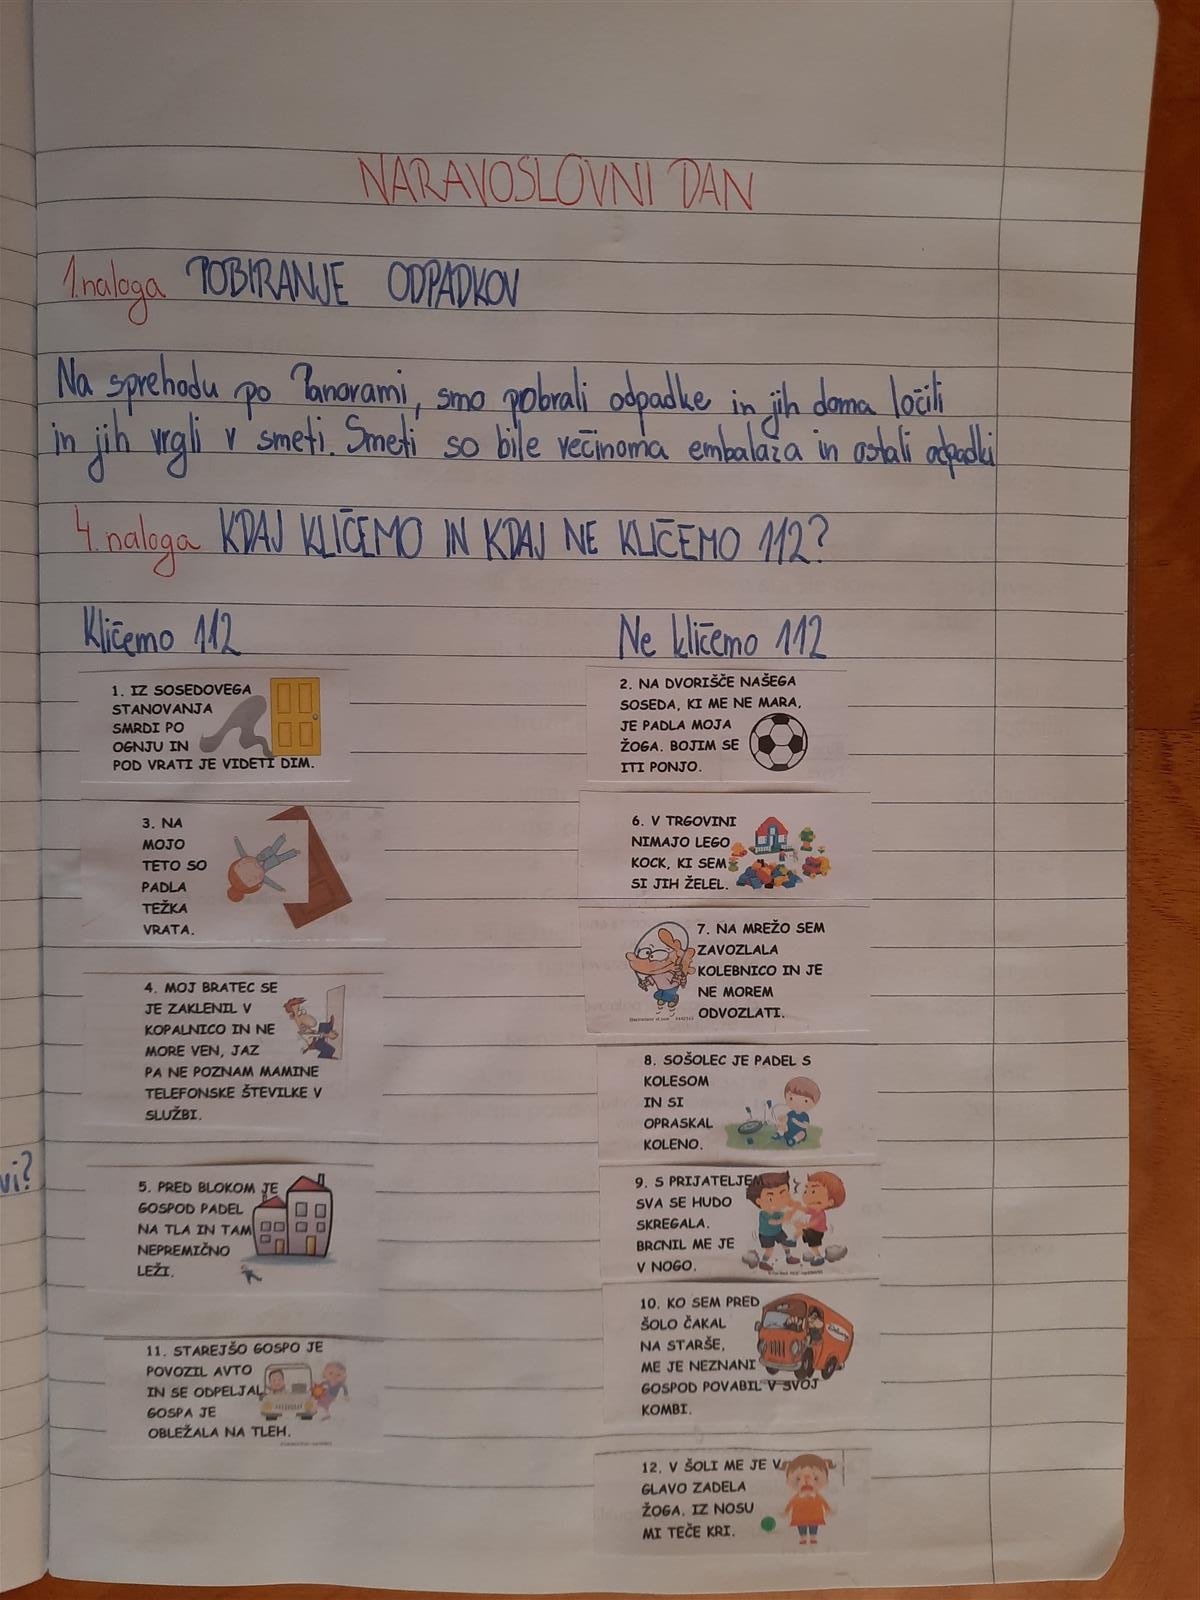 NARAVOSLOVNI DAN
1. naloga POBIRANJE ODPADKOV
Na sprehodu po Panorami, smo pobrali odpadke in jih doma ločili
in jih vrgli v smeti. Smeti so bile večinoma embalaža in ostali odpadki
4. naloga KDAJ KLIČEMO IN KDAJ NE KLIČEMO 112?
Kličemo 112
1. IZ SOSEDOVEGA
STANOVANJA
SMRDI PO
OGNJU IN
POD VRATI JE VIDETI DIM.
3. NA
MOJO
TETO SO
PADLA
TEŽKA
VRATA.
4. MOJ BRATEC SE
JE ZAKLENIL V
KOPALNICO IN NE
MORE VEN, JAZ
PA NE POZNAM MAMINE
TELEFONSKE ŠTEVILKE V
SLUŽBI.
5. PRED BLOKOM JE
GOSPOD PADEL
NA TLA IN TAM
NEPREMIČNO
LEŽI.
11. STAREJŠO GOSPO JE
POVOZIL AVTO
IN SE ODPELJAL,
GOSPA JE
OBLEŽALA NA TLEH.
Ne kličemo 112
2. NA DVORIŠČE NAŠEGA
SOSEDA, KI ME NE MARA,
JE PADLA MOJA
ŽOGA. BOJIM SE
ITI PONJO.
6. V TRGOVINI
NIMAJO LEGO
KOCK, KI SEM
SI JIH ŽELEL.
7. NA MREŽO SEM
ZAVOZLALA
KOLEBNICO IN JE
NE MOREM
ODVOZLATI.
8. SOŠOLEC JE PADEL S
KOLESOM
IN SI
OPRASKAL
KOLENO.
9. S PRIJATELJEM
SVA SE HUDO
SKREGALA.
BRCNIL ME JE
V NOGO.
10. KO SEM PRED
ŠOLO ČAKAL
NA STARŠE,
ME JE NEZNANI
GOSPOD POVABIL V SVOJ
KOMBI.
12. V ŠOLI ME JE V
GLAVO ZADELA
ŽOGA. IZ NOSU
MI TEČE KRI.
vi?